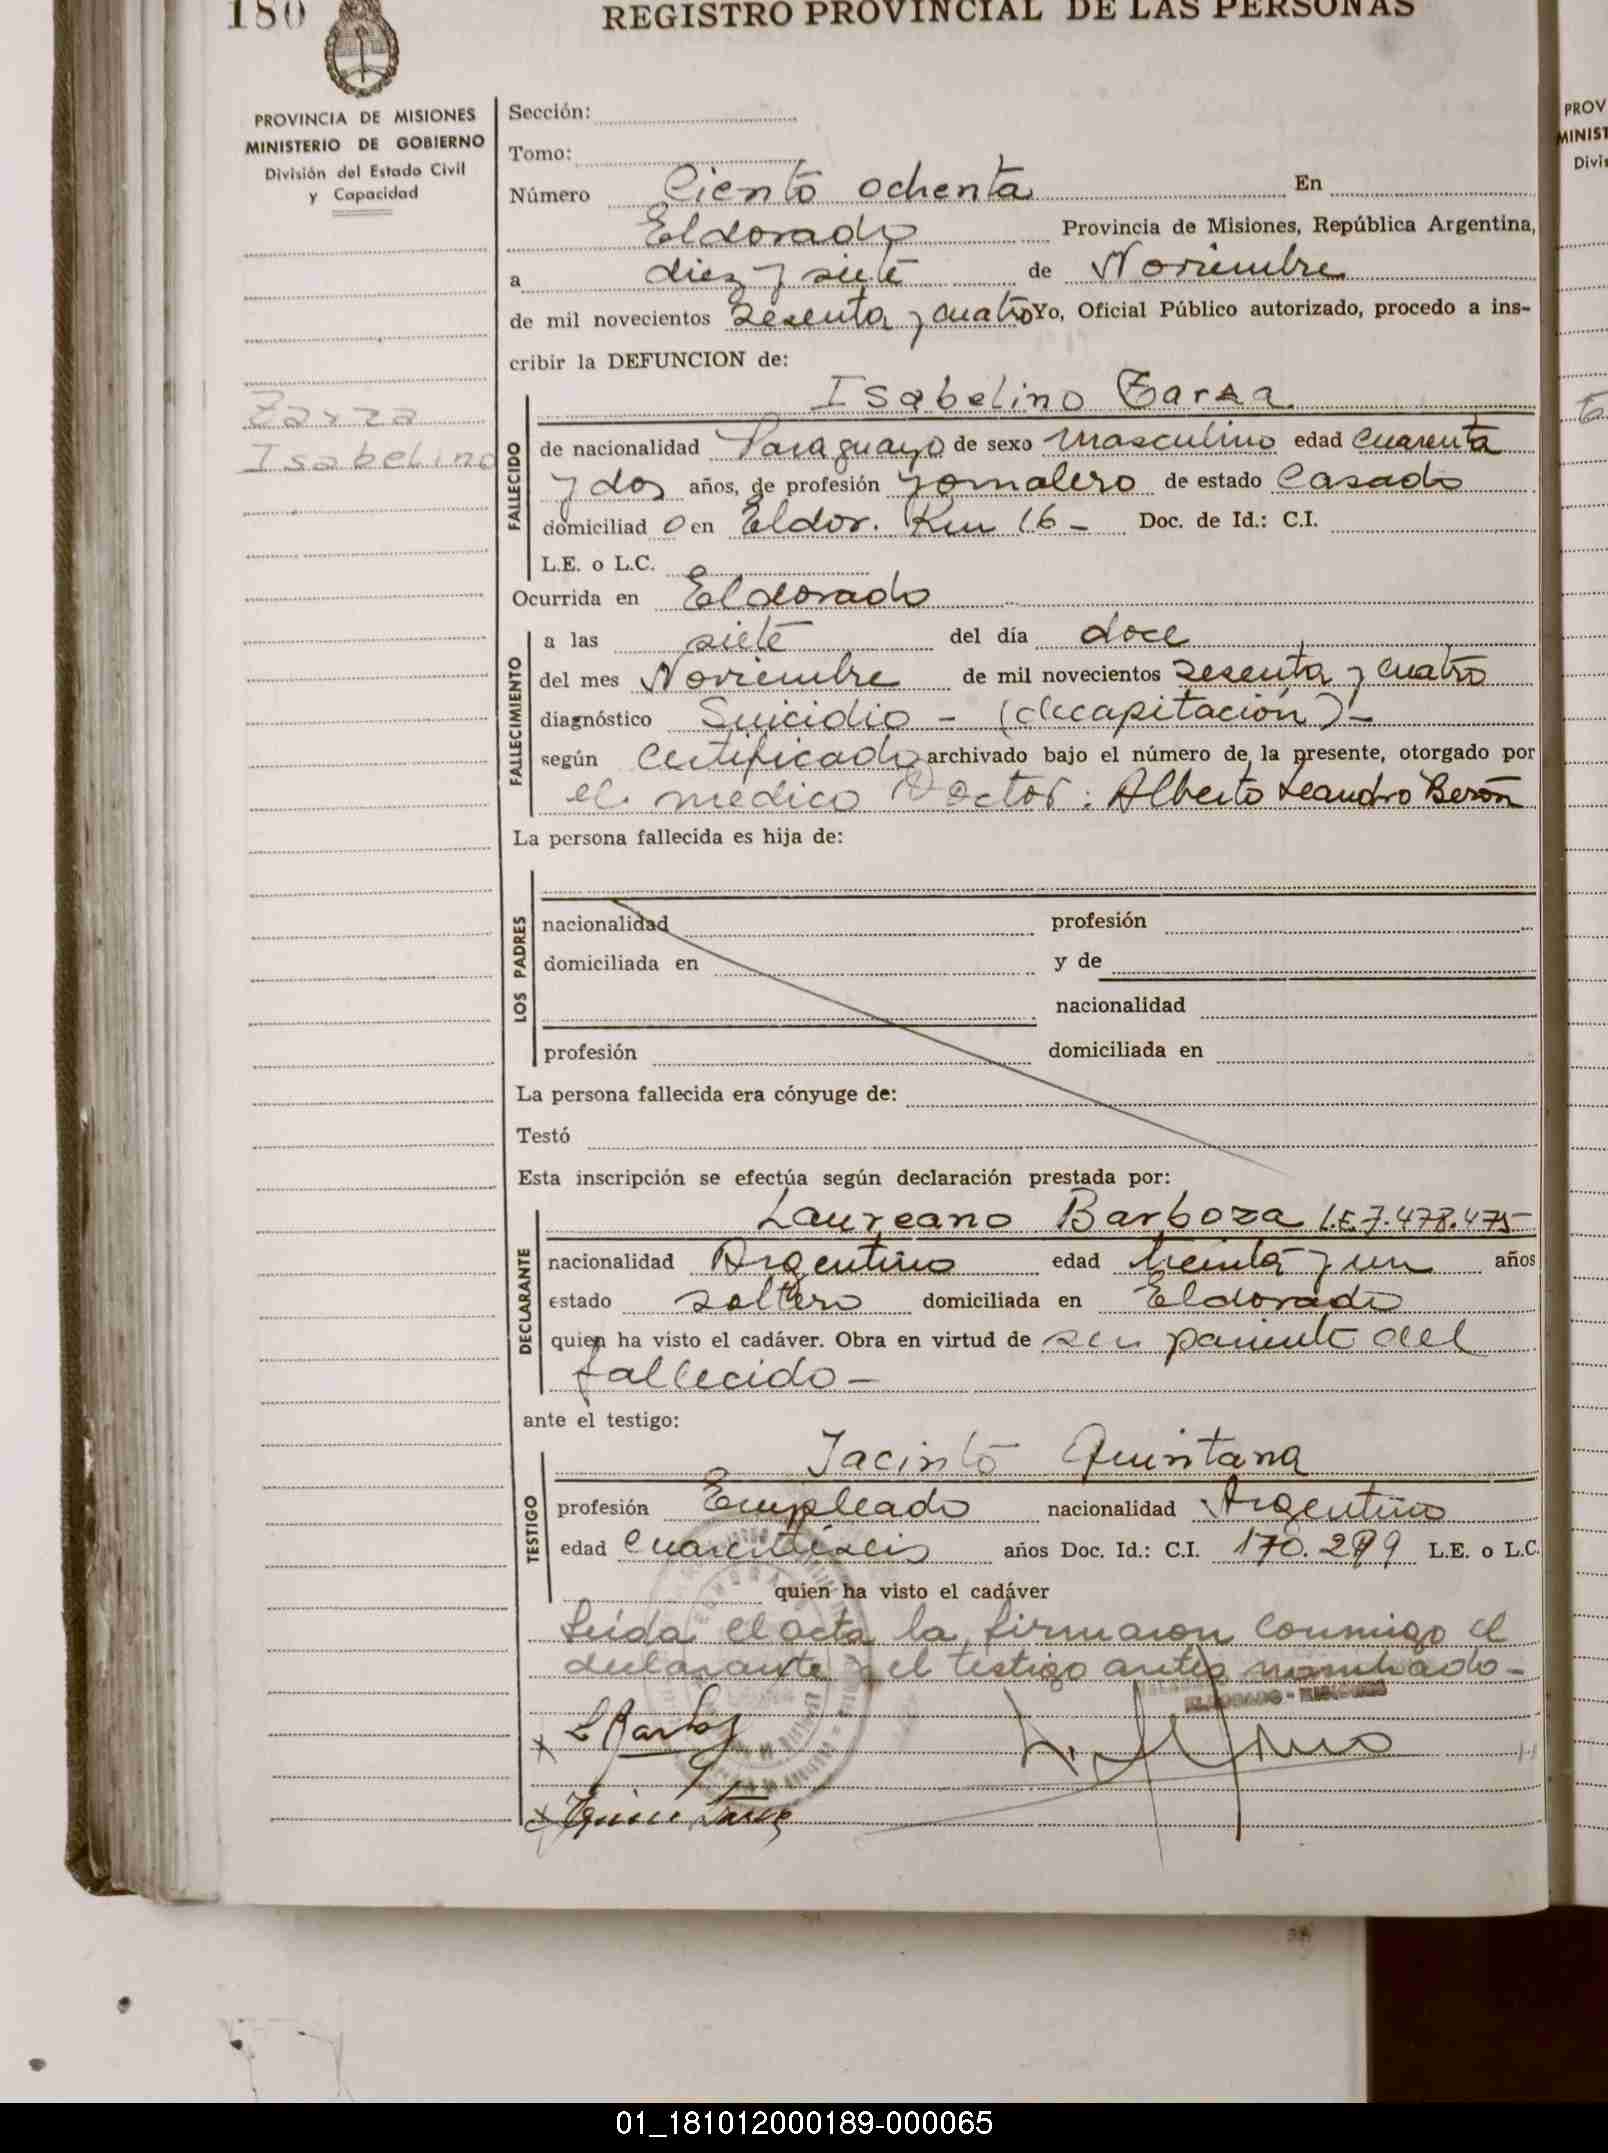 180
REGISTRO PROVINCIAL DE LAS PERSONAS
PROVINCIA DE MISIONES
MINISTERIO DE GOBIERNO
División del Estado Civil
y Capacidad
Zarza
Isabelino
Sección:
Tomo:
Número Ciento ochenta En
Eldorado Provincia de Misiones, República Argentina,
a diez y siete de Noviembre
de mil novecientos sesenta y cuatro Yo, Oficial Público autorizado, procedo a ins-
cribir la DEFUNCION de:
Isabelino Zarza
FALLECIDO
de nacionalidad Paraguayo de sexo masculino edad cuarenta
y dos años, de profesión jornalero de estado Casado
domiciliad o en Eldor. Km 16 - Doc. de Id.: C.I.
L.E. o L.C.
Ocurrida en Eldorado
FALLECIMIENTO
a las siete del día doce
del mes Noviembre de mil novecientos sesenta y cuatro
diagnóstico Suicidio - (decapitación) -
según Certificado archivado bajo el número de la presente, otorgado por
el medico Doctor: Alberto Leandro Berón
La persona fallecida es hija de:
LOS PADRES
nacionalidad profesión
domiciliada en y de
nacionalidad
profesión domiciliada en
La persona fallecida era cónyuge de:
Testó
Esta inscripción se efectúa según declaración prestada por:
Laureano Barboza L.E. 7.478.475-
DECLARANTE
nacionalidad Argentino edad treinta y un años
estado soltero domiciliada en Eldorado
quien ha visto el cadáver. Obra en virtud de ser pariente del
fallecido -
ante el testigo:
Jacinto Quintana
TESTIGO
profesión Empleado nacionalidad Argentino
edad cuarentiseis años Doc. Id.: C.I. 170.299 L.E. o L.C.
quien ha visto el cadáver
Leida el acta la firmaron conmigo el
declarante y el testigo antes nombrado -
ELDORADO - MISIONES
PROV
MINIST
Divis
01_181012000189-000065